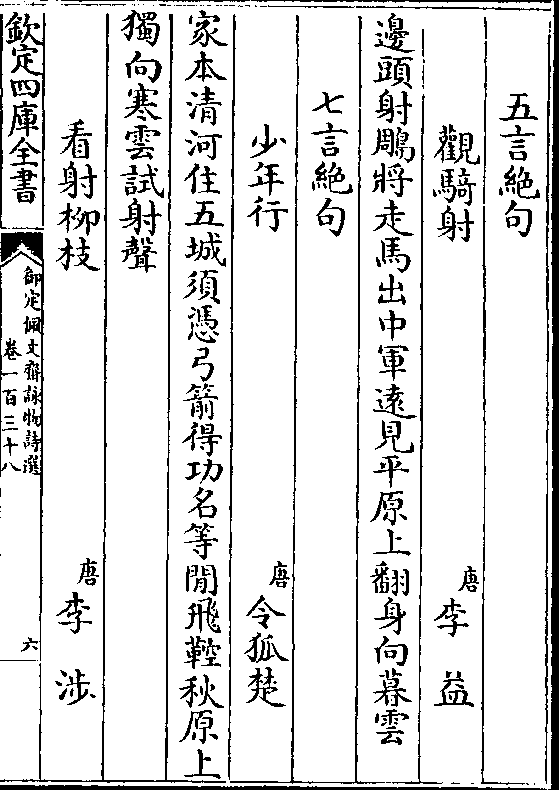 五言絶句
觀騎射
唐 李益
邊頭射鵰將走馬出中軍遠見平原上翻身向暮雲
七言絶句
少年行
唐 令狐楚
家本清河住五城須憑弓箭得功名等閒飛鞚秋原上
獨向寒雲試射聲
看射柳枝
唐 李涉
欽定四庫全書
御定佩文齋詠物詩選
卷一百三十八
六